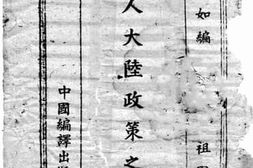 如編
祖
人大陸政策之
中國編譯出